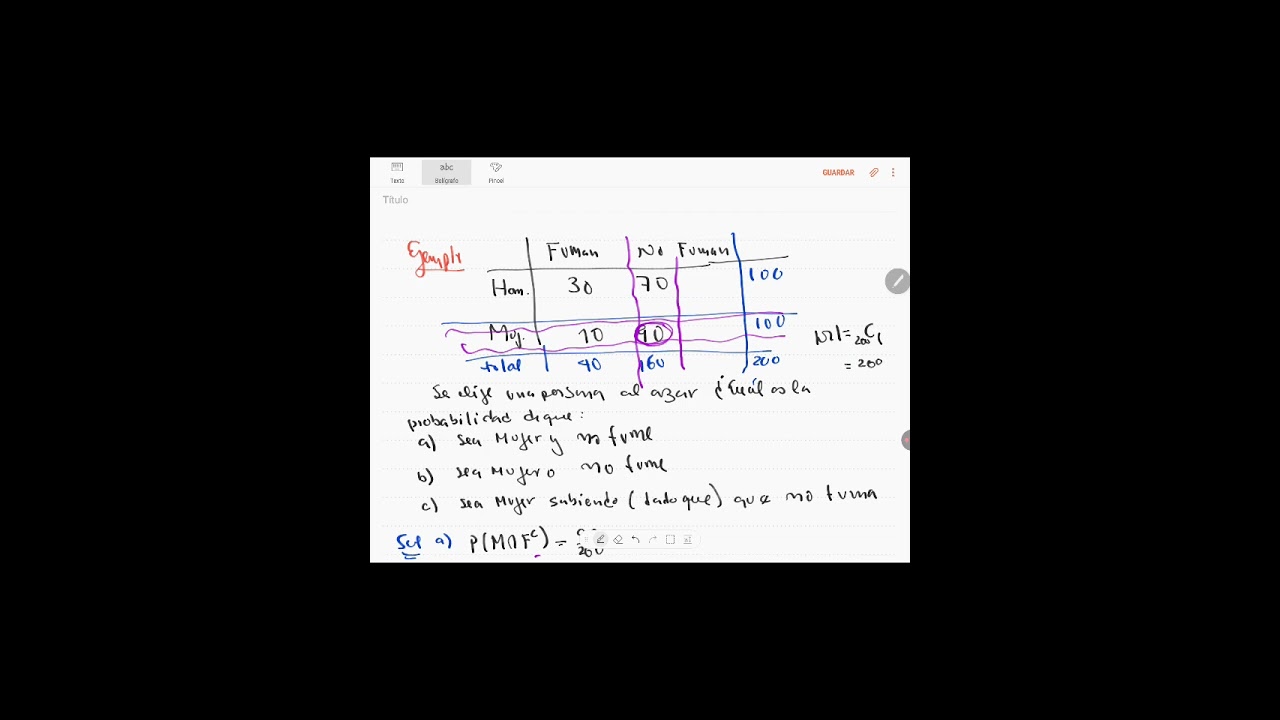 Texto
abc
Bolígrafo
Pincel
GUARDAR
Título
Ejemplo
Fuman No Fuman
Hom. 30 70 100
Muj. 10 90 100
total 40 160 200
N(Ω)= 200C1
= 200
Se elige una persona al azar ¿Cuál es la
probabilidad de que:
a) sea Mujer y no fume
b) sea Mujer o no fume
c) sea Mujer sabiendo (dado que) que no fuma
Sol a) P(M∩F^c) =
200